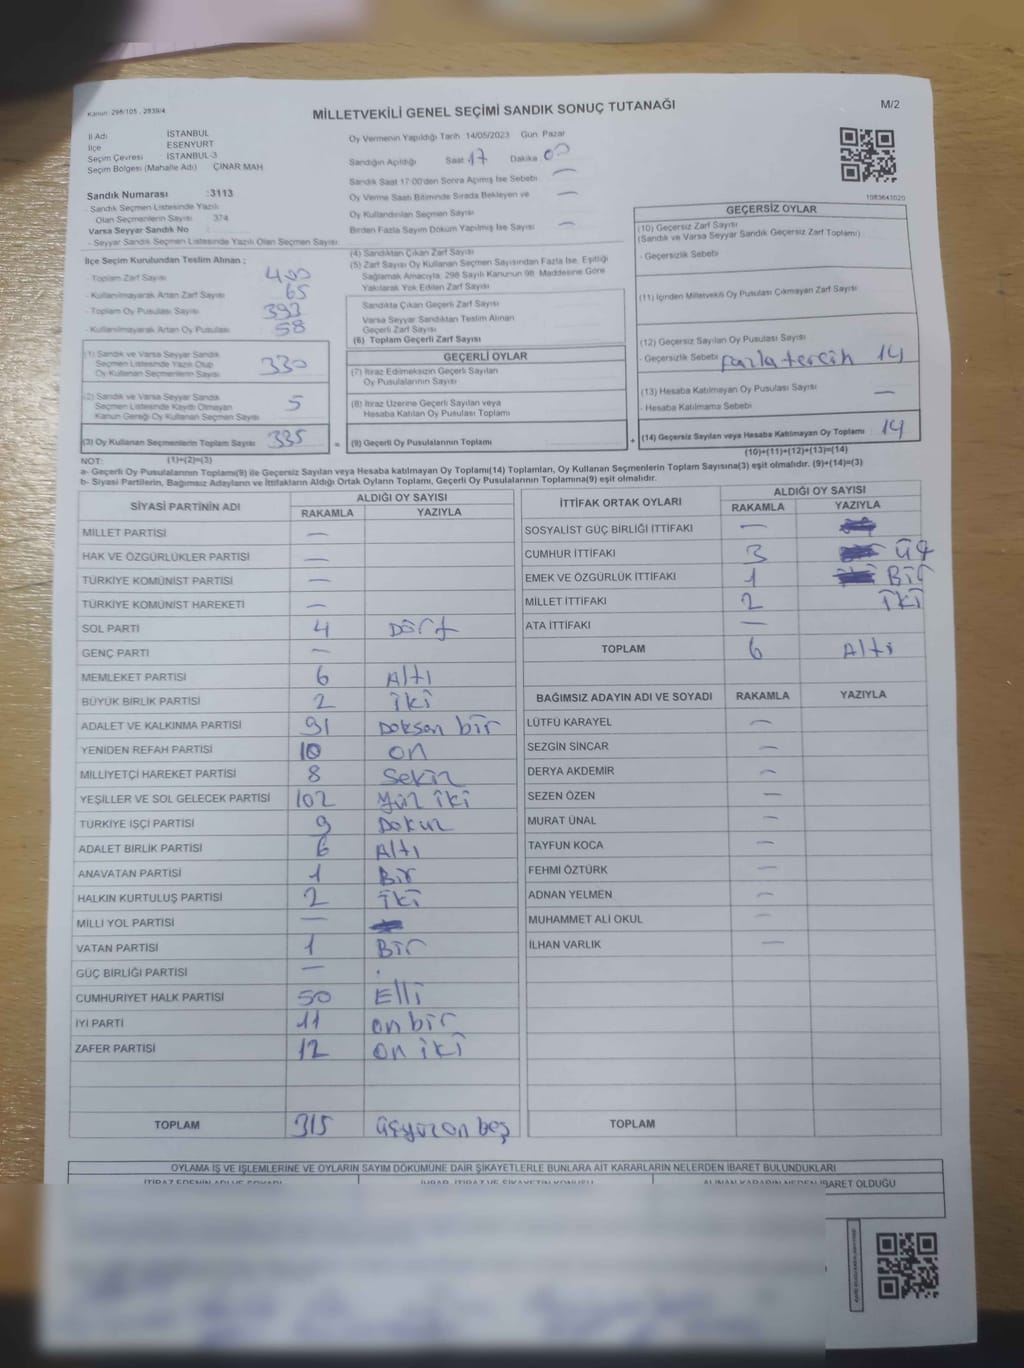 Kanun: 298/105 , 2839/4
MİLLETVEKİLİ GENEL SEÇİMİ SANDIK SONUÇ TUTANAĞI
M/2
İl Adı İSTANBUL
İlçe ESENYURT
Seçim Çevresi İSTANBUL-3
Seçim Bölgesi (Mahalle Adı) ÇINAR MAH
Sandık Numarası :3113
- Sandık Seçmen Listesinde Yazılı
Olan Seçmenlerin Sayısı 374
Varsa Seyyar Sandık No
- Seyyar Sandık Seçmen Listesinde Yazılı Olan Seçmen Sayısı:
Oy Vermenin Yapıldığı Tarih 14/05/2023 Gün: Pazar
Sandığın Açıldığı Saat 17 Dakika 00
Sandık Saat 17:00'den Sonra Açılmış İse Sebebi —
Oy Verme Saati Bitiminde Sırada Bekleyen ve —
Oy Kullandırılan Seçmen Sayısı
Birden Fazla Sayım Döküm Yapılmış İse Sayısı —
1083643020
İlçe Seçim Kurulundan Teslim Alınan :
- Toplam Zarf Sayısı 400
- Kullanılmayarak Artan Zarf Sayısı 65
- Toplam Oy Pusulası Sayısı 393
- Kullanılmayarak Artan Oy Pusulası 58
(1) Sandık ve Varsa Seyyar Sandık
Seçmen Listesinde Yazılı Olup
Oy Kullanan Seçmenlerin Sayısı 330
(2) Sandık ve Varsa Seyyar Sandık
Seçmen Listesinde Kayıtlı Olmayan
Kanun Gereği Oy Kullanan Seçmen Sayısı 5
(3) Oy Kullanan Seçmenlerin Toplam Sayısı 335 =
(4) Sandıktan Çıkan Zarf Sayısı
(5) Zarf Sayısı Oy Kullanan Seçmen Sayısından Fazla İse, Eşitliği
Sağlamak Amacıyla, 298 Sayılı Kanunun 98. Maddesine Göre
Yakılarak Yok Edilen Zarf Sayısı
Sandıkta Çıkan Geçerli Zarf Sayısı
Varsa Seyyar Sandıktan Teslim Alınan
Geçerli Zarf Sayısı
(6) Toplam Geçerli Zarf Sayısı
GEÇERLİ OYLAR
(7) İtiraz Edilmeksizin Geçerli Sayılan
Oy Pusulalarının Sayısı
(8) İtiraz Üzerine Geçerli Sayılan veya
Hesaba Katılan Oy Pusulası Toplamı
(9) Geçerli Oy Pusulalarının Toplamı +
GEÇERSİZ OYLAR
(10) Geçersiz Zarf Sayısı
(Sandık ve Varsa Seyyar Sandık Geçersiz Zarf Toplamı)
- Geçersizlik Sebebi
(11) İçinden Milletvekili Oy Pusulası Çıkmayan Zarf Sayısı
(12) Geçersiz Sayılan Oy Pusulası Sayısı
- Geçersizlik Sebebi fazla tercih 14
(13) Hesaba Katılmayan Oy Pusulası Sayısı —
- Hesaba Katılmama Sebebi
(14) Geçersiz Sayılan veya Hesaba Katılmayan Oy Toplamı 14
NOT: (1)+(2)=(3) (10)+(11)+(12)+(13)=(14)
a- Geçerli Oy Pusulalarının Toplamı(9) ile Geçersiz Sayılan veya Hesaba katılmayan Oy Toplamı(14) Toplamları, Oy Kullanan Seçmenlerin Toplam Sayısına(3) eşit olmalıdır. (9)+(14)=(3)
b- Siyasi Partilerin, Bağımsız Adayların ve İttifakların Aldığı Ortak Oyların Toplamı, Geçerli Oy Pusulalarının Toplamına(9) eşit olmalıdır.
SİYASİ PARTİNİN ADI ALDIĞI OY SAYISI
RAKAMLA YAZIYLA
MİLLET PARTİSİ —
HAK VE ÖZGÜRLÜKLER PARTİSİ —
TÜRKİYE KOMÜNİST PARTİSİ —
TÜRKİYE KOMÜNİST HAREKETİ —
SOL PARTİ 4 Dört
GENÇ PARTİ —
MEMLEKET PARTİSİ 6 Altı
BÜYÜK BİRLİK PARTİSİ 2 iki
ADALET VE KALKINMA PARTİSİ 91 Doksan bir
YENİDEN REFAH PARTİSİ 10 on
MİLLİYETÇİ HAREKET PARTİSİ 8 Sekiz
YEŞİLLER VE SOL GELECEK PARTİSİ 102 Yüz iki
TÜRKİYE İŞÇİ PARTİSİ 9 Dokuz
ADALET BİRLİK PARTİSİ 6 Altı
ANAVATAN PARTİSİ 1 Bir
HALKIN KURTULUŞ PARTİSİ 2 iki
MİLLİ YOL PARTİSİ —
VATAN PARTİSİ 1 Bir
GÜÇ BİRLİĞİ PARTİSİ —
CUMHURİYET HALK PARTİSİ 50 Elli
İYİ PARTİ 11 on bir
ZAFER PARTİSİ 12 on iki
TOPLAM 315 üçyüzon beş
İTTİFAK ORTAK OYLARI ALDIĞI OY SAYISI
RAKAMLA YAZIYLA
SOSYALİST GÜÇ BİRLİĞİ İTTİFAKI —
CUMHUR İTTİFAKI 3 üç
EMEK VE ÖZGÜRLÜK İTTİFAKI 1 Bir
MİLLET İTTİFAKI 2 iki
ATA İTTİFAKI —
TOPLAM 6 Altı
BAĞIMSIZ ADAYIN ADI VE SOYADI RAKAMLA YAZIYLA
LÜTFÜ KARAYEL —
SEZGİN SİNCAR —
DERYA AKDEMİR —
SEZEN ÖZEN —
MURAT ÜNAL —
TAYFUN KOCA —
FEHMİ ÖZTÜRK —
ADNAN YELMEN —
MUHAMMET ALİ OKUL —
İLHAN VARLIK —
TOPLAM
OYLAMA İŞ VE İŞLEMLERİNE VE OYLARIN SAYIM DÖKÜMÜNE DAİR ŞİKAYETLERLE BUNLARA AİT KARARLARIN NELERDEN İBARET BULUNDUKLARI
İTİRAZ EDENİN ADI VE SOYADI İHBAR, İTİRAZ VE ŞİKAYETİN KONUSU ALINAN KARARIN NEDEN İBARET OLDUĞU